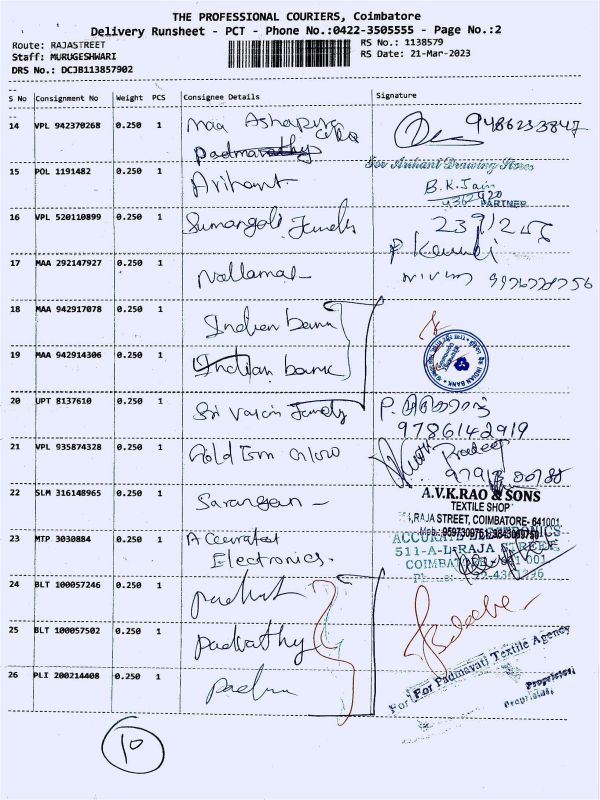 THE PROFESSIONAL COURIERS, Coimbatore
Delivery Runsheet - PCT - Phone No.:0422-3505555 - Page No.:2
Route: RAJASTREET
RS No.: 1138579
Staff: MURUGESHWARI
RS Date: 21-Mar-2023
DRS No.: DCJB113857902
S No Consignment No Weight PCS Consignee Details Signature
14 VPL 942370268 0.250 1 Maa Ashapura 9486233847
Padmavathy
15 POL 1191482 0.250 1 Arihant For Arihant Drawing Stores
B.K.Jain
PARTNER
16 VPL 520110899 0.250 1 Sumangali Jewels
17 MAA 292147927 0.250 1 Nallamai
18 MAA 942917078 0.250 1 Indian bank
19 MAA 942914306 0.250 1 Indian bank INDIAN BANK
20 UPT 8137610 0.250 1 Sri Jewels P.
9786142919
21 VPL 935874328 0.250 1 Gold Pradeep
22 SLM 316148965 0.250 1 Sarangan A.V.K.RAO & SONS
TEXTILE SHOP
RAJA STREET, COIMBATORE- 641001.
23 MTP 3030884 0.250 1 Accurate Electronics. ACCURATE ELECTRONICS
511-A-L-RAJA STREET
COIMBATORE 001
24 BLT 100057246 0.250 1
25 BLT 100057502 0.250 1 Padvathy
For For Padmavati Textile Agency
26 PLI 200214408 0.250 1 Proprietor
Proprietor
10